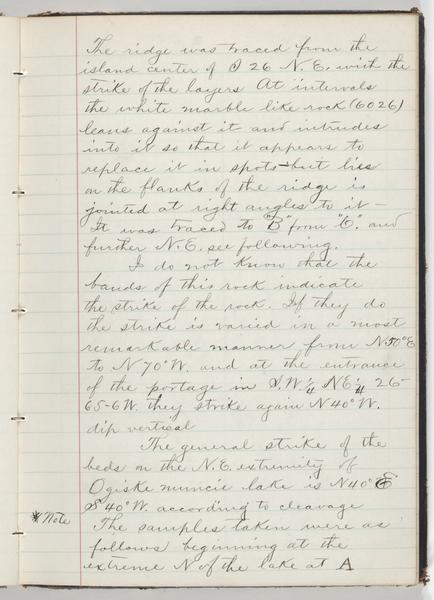 The ridge was traced from the
island center of S 26 N.E. with the
strike of the layers At intervals
the white marble like rock (6026)
leans against it and intrudes
into it so that it appears to
replace it in spots but lies
on the flanks of the ridge is
jointed at right angles to it —
It was traced to "B" from "C". and
further N.E. see following.
I do not know that the
bands of this rock indicate
the strike of the rock. If they do
the strike is varied in a most
remarkable manner from N50°E
to N70°W. and at the entrance
of the portage in S.W¼ NE¼ 26-
65-6W. they strike again N40°W.
dip vertical
The general strike of the
beds on the N.E. extremity of
Ogiske muncie lake is N40°E
S40°W. according to cleavage
*Note The samples taken were as
follows beginning at the
extreme N of the lake at A